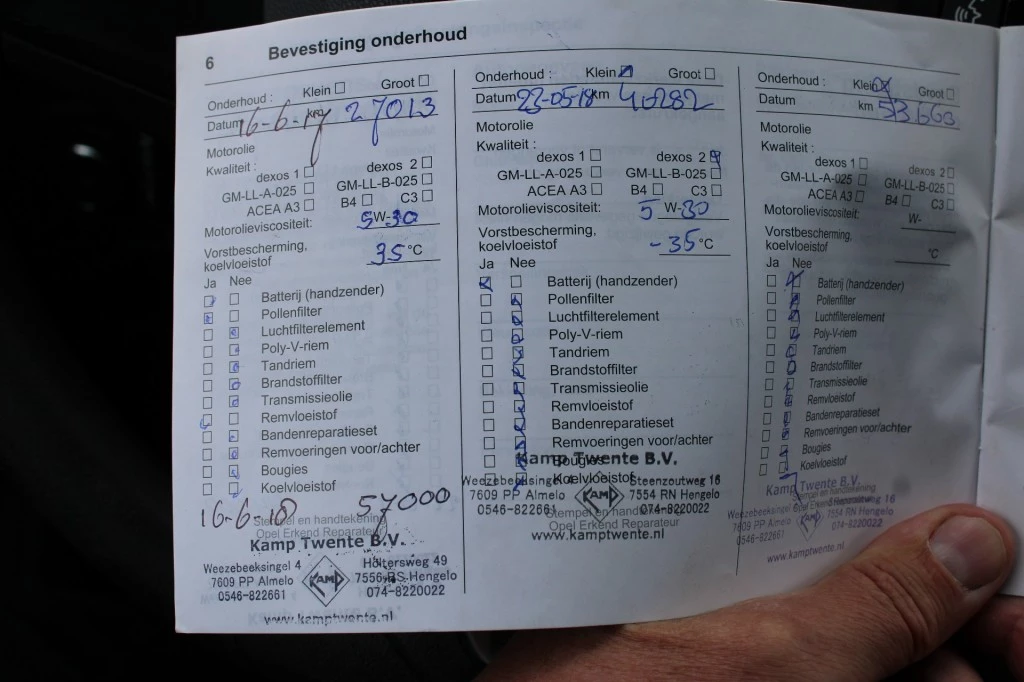 6
Bevestiging onderhoud
Onderhoud : Klein Groot
Datum 16-6-17 km 27013
Motorolie
Kwaliteit :
dexos 1 dexos 2
GM-LL-A-025 GM-LL-B-025
ACEA A3 B4 C3
Motorolieviscositeit: 5 W-30
Vorstbescherming,
koelvloeistof 35 °C
Ja Nee
Batterij (handzender)
Pollenfilter
Luchtfilterelement
Poly-V-riem
Tandriem
Brandstoffilter
Transmissieolie
Remvloeistof
Bandenreparatieset
Remvoeringen voor/achter
Bougies
Koelvloeistof
16-6-18 57000
Stempel en handtekening
Opel Erkend Reparateur
Kamp Twente B.V.
Weezebeeksingel 4 Holtersweg 49
7609 PP Almelo KAMP 7556 BS Hengelo
0546-822661 074-8220022
www.kamptwente.nl
Onderhoud : Klein Groot
Datum 23-05-18 km 40282
Motorolie
Kwaliteit :
dexos 1 dexos 2
GM-LL-A-025 GM-LL-B-025
ACEA A3 B4 C3
Motorolieviscositeit: 5 W-30
Vorstbescherming,
koelvloeistof -35 °C
Ja Nee
Batterij (handzender)
Pollenfilter
Luchtfilterelement
Poly-V-riem
Tandriem
Brandstoffilter
Transmissieolie
Remvloeistof
Bandenreparatieset
Remvoeringen voor/achter
Bougies
Kamp Twente B.V.
Koelvloeistof
Weezebeeksingel 4 Steenzoutweg 16
7609 PP Almelo KAMP 7554 RN Hengelo
0546-822661 074-8220022
Stempel en handtekening
Opel Erkend Reparateur
www.kamptwente.nl
Onderhoud : Klein Groot
Datum km 53663
Motorolie
Kwaliteit :
dexos 1 dexos 2
GM-LL-A-025 GM-LL-B-025
ACEA A3 B4 C3
Motorolieviscositeit: W-
Vorstbescherming,
koelvloeistof °C
Ja Nee
Batterij (handzender)
Pollenfilter
Luchtfilterelement
Poly-V-riem
Tandriem
Brandstoffilter
Transmissieolie
Remvloeistof
Bandenreparatieset
Remvoeringen voor/achter
Bougies
Koelvloeistof
Kamp Twente B.V.
Stempel en handtekening
Opel Erkend Reparateur
Weezebeeksingel 4 Steenzoutweg 16
7609 PP Almelo KAMP 7554 RN Hengelo
0546-822661 074-8220022
www.kamptwente.nl